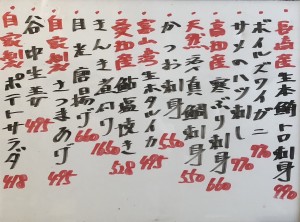 長崎産生本鮪トロ刺身 990
ボイルズワイガニ 770
サメのハツ刺し 770
富山産寒ぶり刺身 660
天然活〆真鯛刺身 550
かつお刺身 550
富山湾生ホタルイカ 495
愛知産鮎塩焼き 528
きんき煮付け 1660
目光唐揚げ 660
自家製さつまあげ 495
谷中生姜 495
自家製ポテトサラダ 418